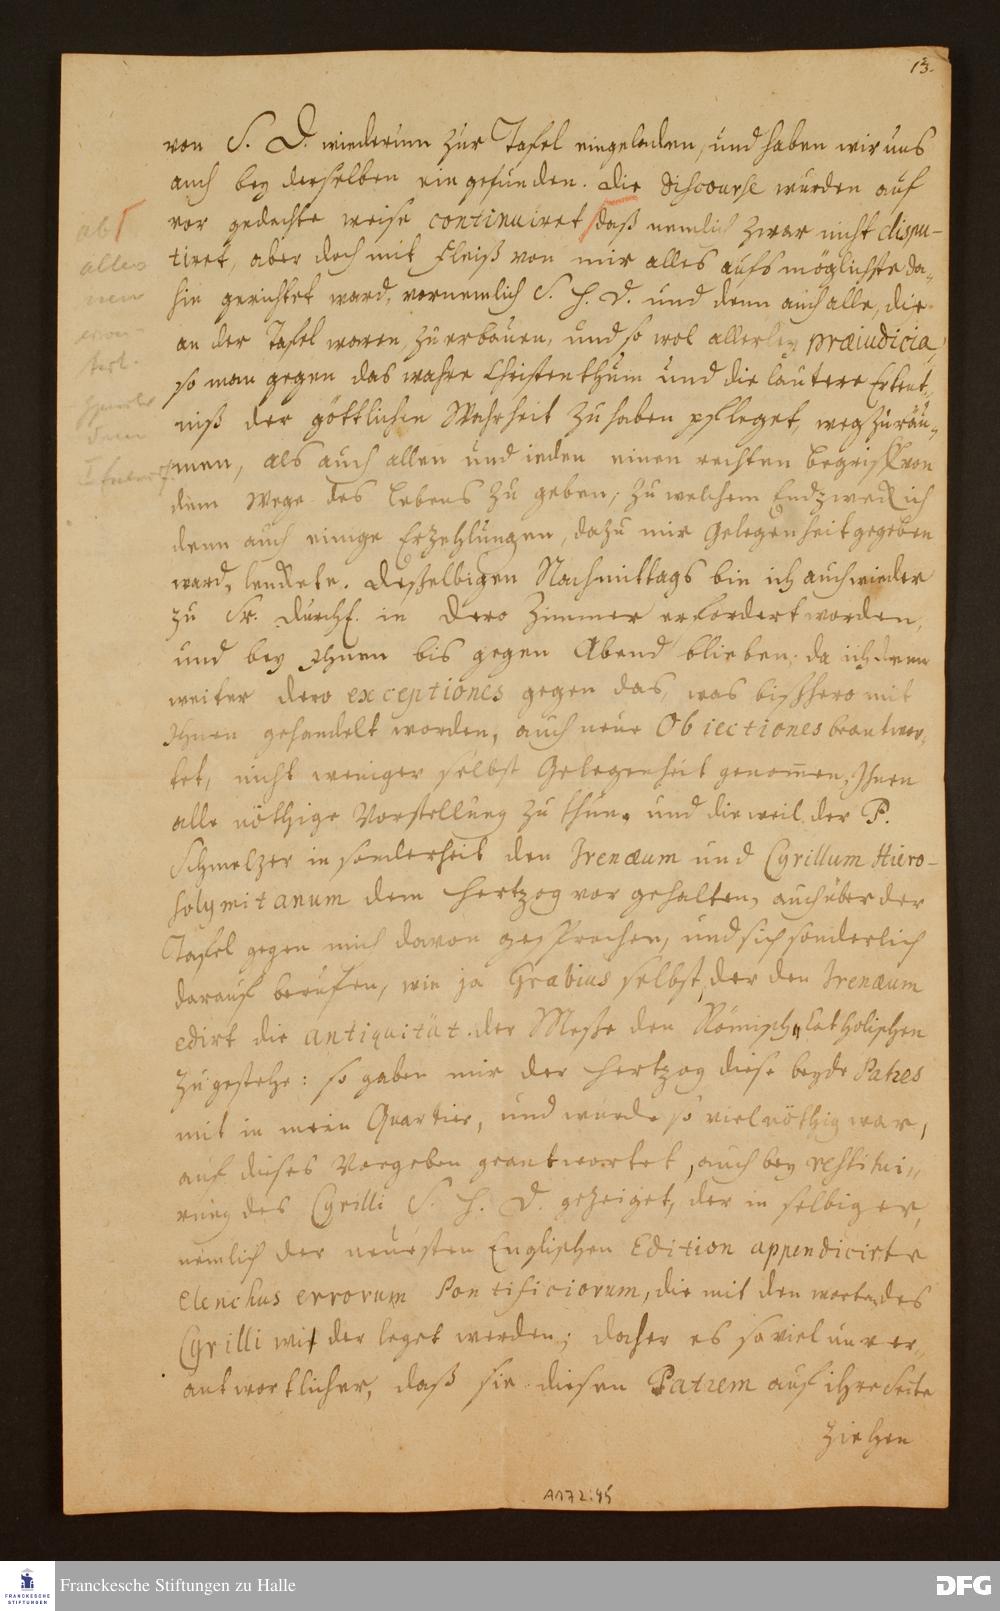 13.
von S. D. wiederum zur Tafel eingeladen, und haben wir uns
auch bey derselben eingefunden. Die Discourse wurden auf
vor gedachte weise continuiret, daß nemlich zwar nicht dispu-
tiret, aber doch mit Fleiß von mir alles aufs möglichste da-
hin gerichtet ward, vornemlich S. H. D. und denn auch alle, die
an der Tafel waren, zu erbauen, und so wol allerley præiudicia,
so man gegen das wahre Christenthum und die lautere Erkent-
niß der göttlichen Wahrheit zu haben pfleget, weg zu räu-
men, als auch allen und ieden einen rechten begriff von
dem Wege des Lebens zu geben; zu welchem Endzweck ich
denn auch einige Erzehlungen, dazu mir Gelegenheit gegeben
ward, lenckete. Deßelbigen Nachmittags bin ich auch wieder
zu Sr. Durchl. in Dero Zimmer erfordert worden,
und bey Ihnen bis gegen Abend blieben; da ich denn
weiter dero exceptiones gegen das, was bißhero mit
Ihnen gehandelt worden, auch neue Obiectiones beantwor-
tet, nicht weniger selbst Gelegenheit genommen, Ihnen
alle nöthige Vorstellung zu thun. und dieweil der P.
Schmelzer in sonderheit den Irenæum und Cyrillum Hiero-
solymitanum dem Hertzog vor gehalten, auch über der
Tafel gegen mich davon gesprochen, und sich sonderlich
darauf beruffen, wie ja Grabius selbst, der den Irenæum
edirt die antiquität der Meße den Römisch-Catholischen
zugestehe: so gaben mir der Hertzog diese beyde Patres
mit in mein Quartier, und wurde so viel nöthig war,
auf dieses Vorgeben geantwortet, auch bey restitui-
rung des Cyrilli S. H. D. gezeiget, der in selbiger,
nemlich der neuesten Englischen Edition appendicirte
elenchus errorum Pontificiorum, die mit den worten des
Cyrilli widerleget werden; daher es so viel unver-
antwortlicher, daß sie diesen Patrem auf ihre Seite
ziehen
alles
A172:45
FRANCKESCHE
STIFTUNGEN
Franckesche Stiftungen zu Halle
DFG